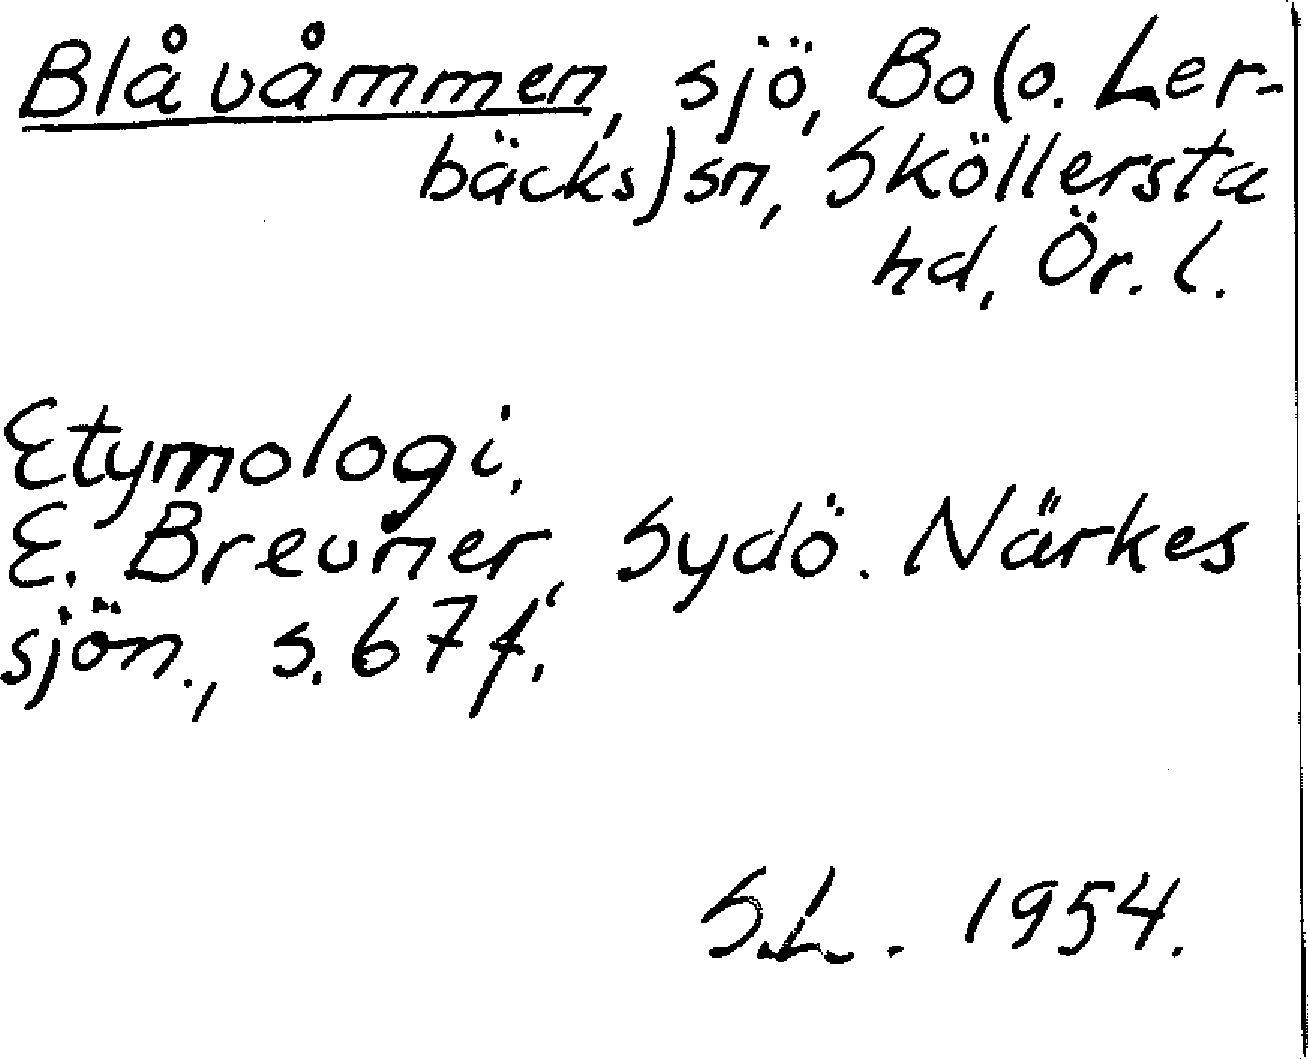 Blåvåmmen, sjö, Bo(o. Ler-
bäcks)sn, Sköllersta
hd, Ör. l.
Etymologi.
E. Brevner, Sydö. Närkes
sjön., s. 67 f.
S.L. 1954.